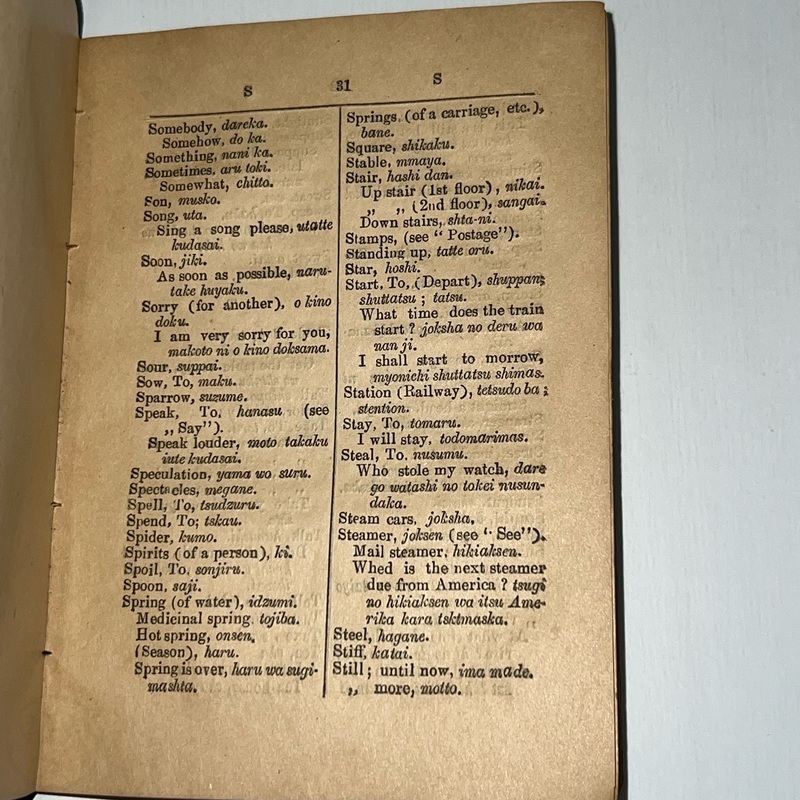 S 31 S
Somebody, dareka.
Somehow, do ka.
Something, nani ka.
Sometimes, aru toki.
Somewhat, chitto.
Son, musko.
Song, uta.
Sing a song please, utatte
kudasai.
Soon, jiki.
As soon as possible, naru-
take huyaku.
Sorry (for another), o kino
doku.
I am very sorry for you,
makoto ni o kino doksama.
Sour, suppai.
Sow, To, maku.
Sparrow, suzume.
Speak, To, hanasu (see
„ Say").
Speak louder, moto takaku
iute kudasai.
Speculation, yama wo suru.
Spectacles, megane.
Spell, To, tsudzuru.
Spend, To; tskau.
Spider, kumo.
Spirits (of a person), ki.
Spoil, To, sonjiru.
Spoon, saji.
Spring (of water), idzumi.
Medicinal spring, tojiba.
Hot spring, onsen.
(Season), haru.
Spring is over, haru wa sugi-
mashta.
Springs (of a carriage, etc.),
bane.
Square, shikaku.
Stable, mmaya.
Stair, hashi dan.
Up stair (1st floor), nikai.
„ „ (2nd floor), sangai.
Down stairs, shta-ni.
Stamps, (see “ Postage”).
Standing up, tatte oru.
Star, hoshi.
Start, To, (Depart), shuppan;
shuttatsu ; tatsu.
What time does the train
start ? joksha no deru wa
nan ji.
I shall start to morrow,
myonichi shuttatsu shimas.
Station (Railway), tetsudo ba ;
stention.
Stay, To, tomaru.
I will stay, todomarimas.
Steal, To, nusumu.
Who stole my watch, dare
go watashi no tokei nusun-
daka.
Steam cars, joksha.
Steamer, joksen (see ‘· See”).
Mail steamer, hikiaksen.
Whed is the next steamer
due from America ? tsugi
no hikiaksen wa itsu Ame-
rika kara tsktmaska.
Steel, hagane.
Stiff, katai.
Still ; until now, ima made.
„ more, motto.